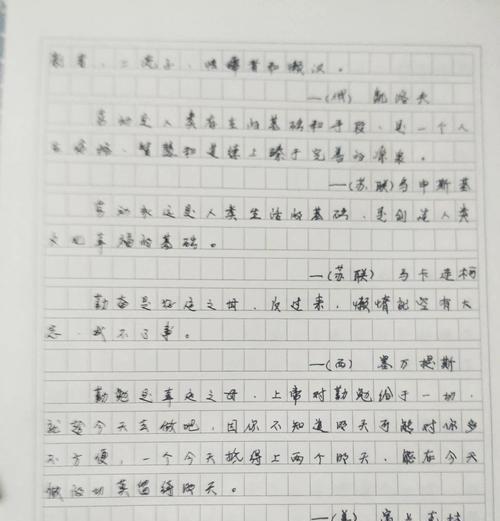 寄者、二流子、 和懒汉。
—(俄) 克洛夫
劳动是人类存在的基础和手段,是一个人
、智慧和道德上臻于完善的源泉。
—(苏联)乌申斯基
劳动永远是人类生活的基础,是创造人类
文化幸福的基础。
—(苏联) 马卡连柯
勤奋是好运之母,反过来,懒惰就空有大
志,成不了事。
—(西) 塞万提斯
勤勉是幸运之母,上帝对勤勉给于一切,
就趁今天去做吧,因你不知道明天可能对你多
不方便,一个今天抵得上两个明天,能在今天
做的切莫留待明天。
—(美) 富兰克林